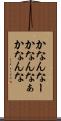 かなんなー
かなんなぁ
かなんな